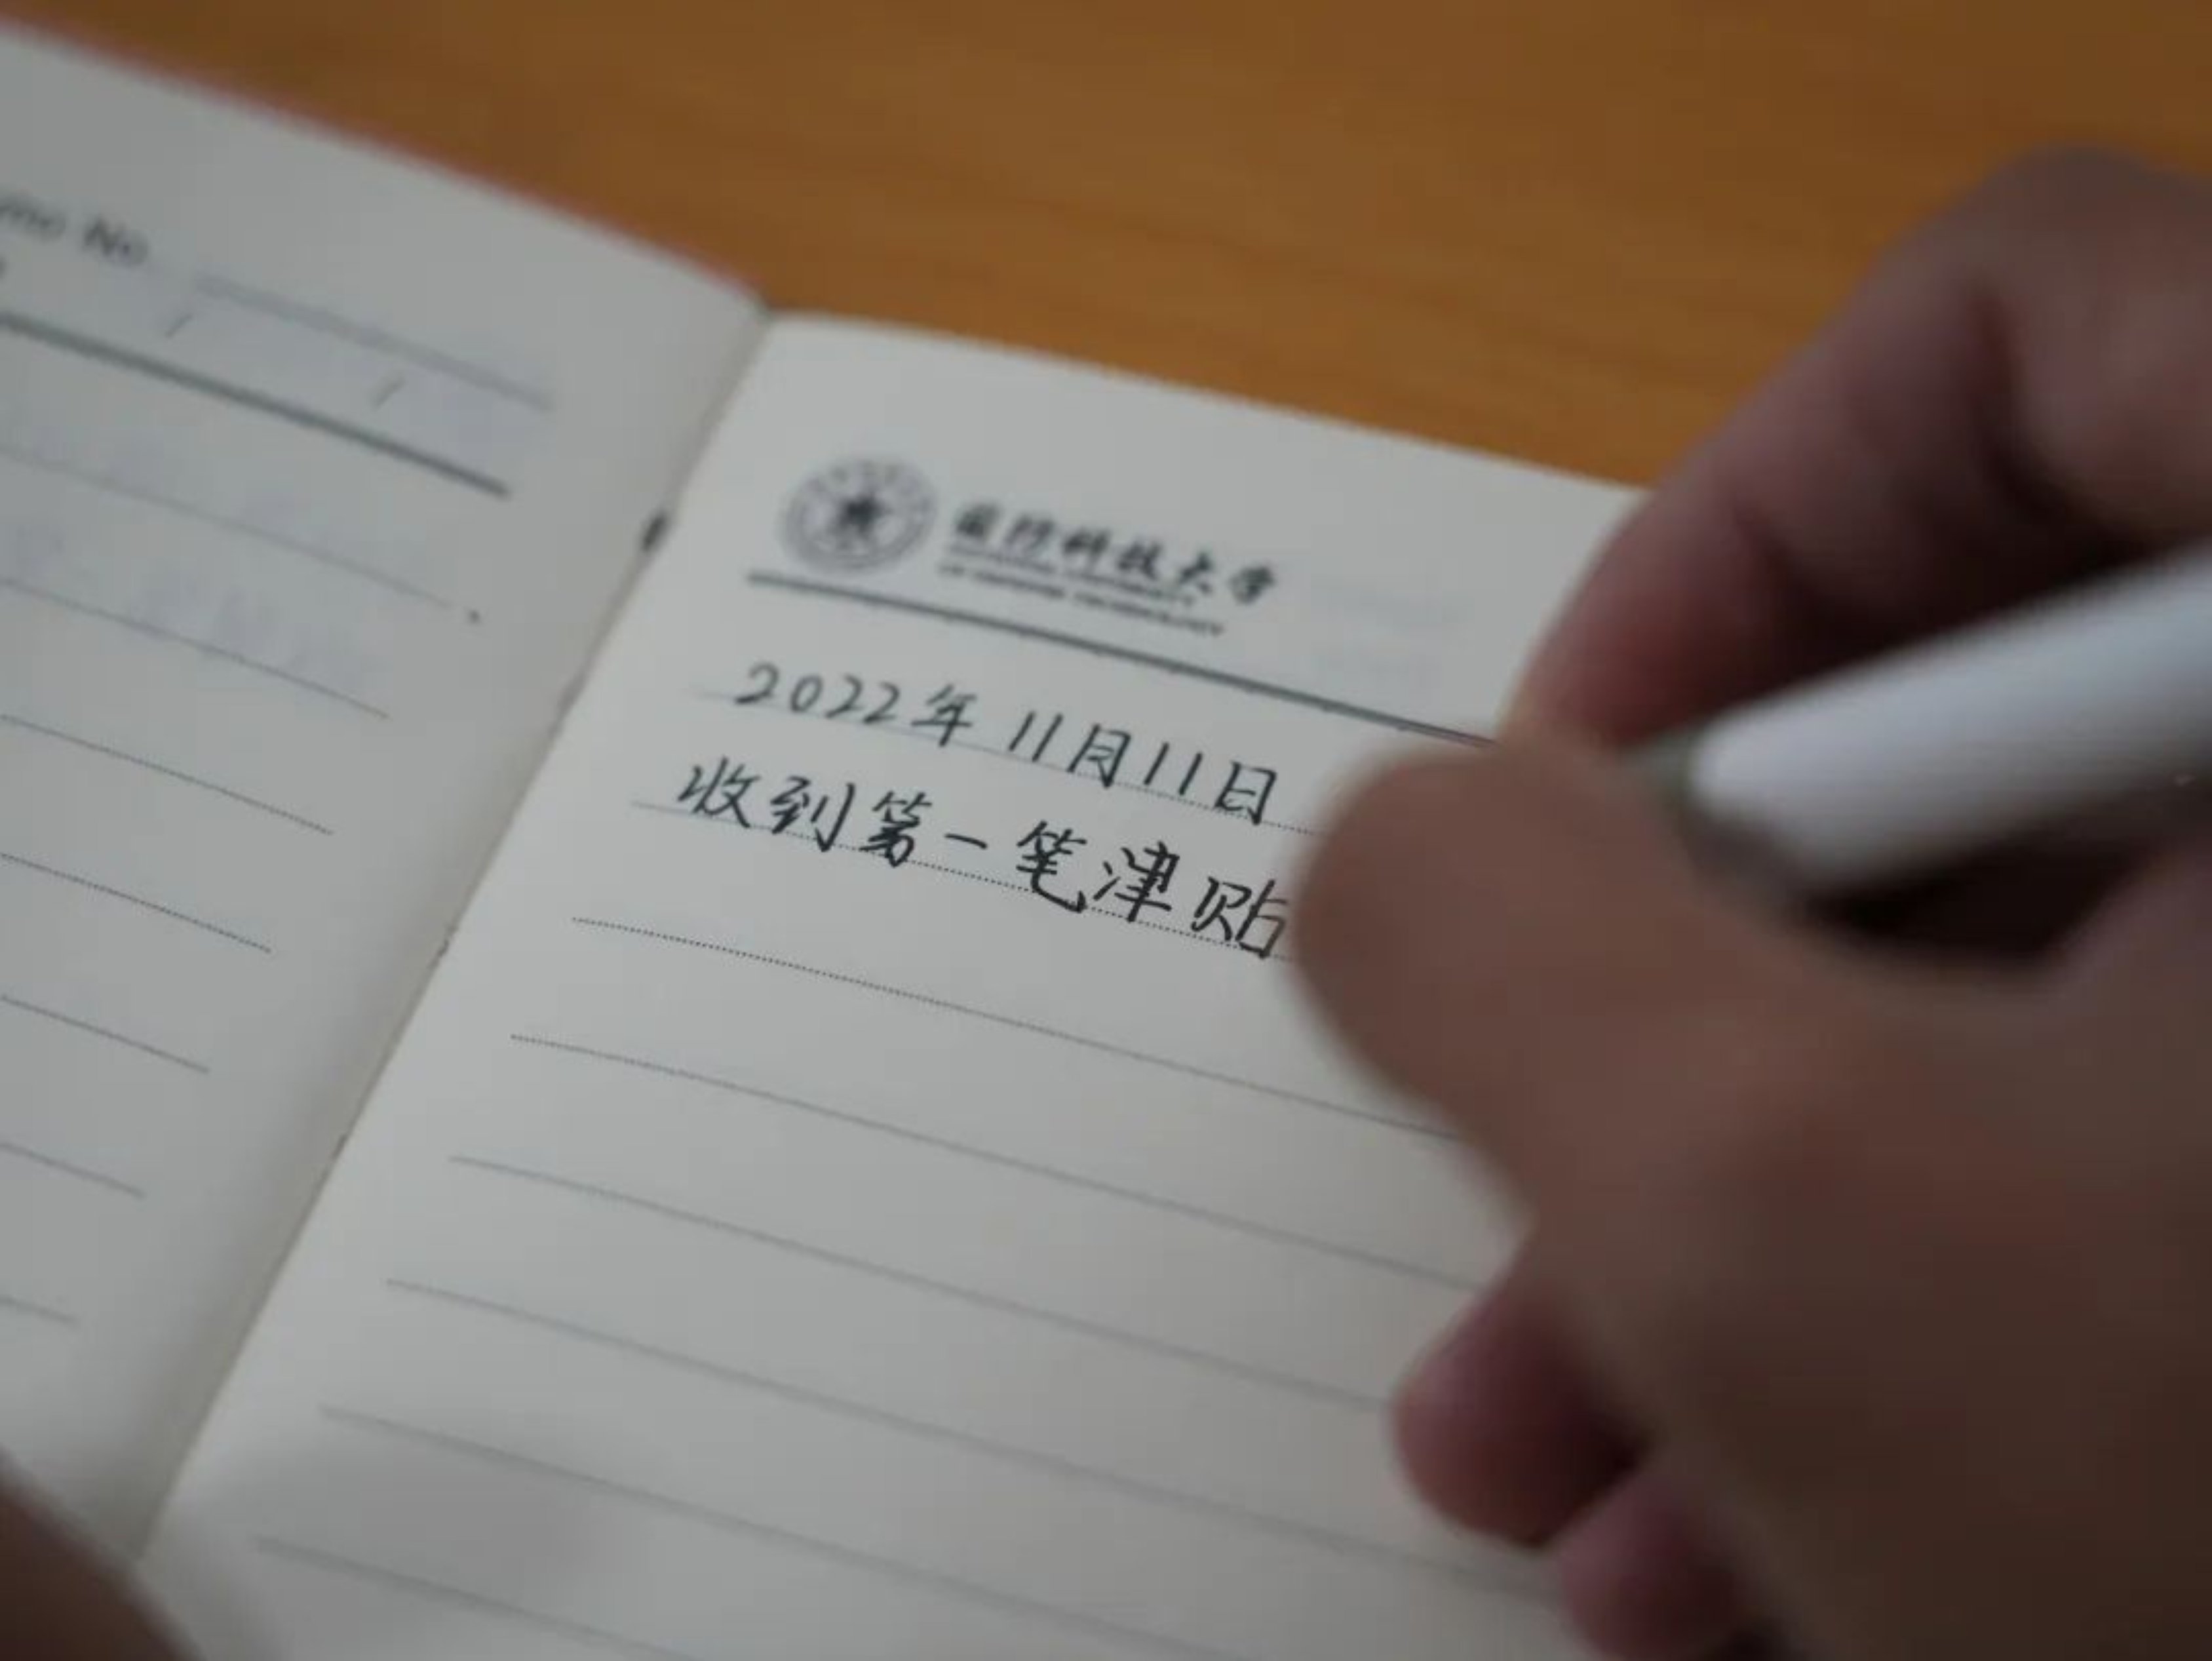 No
国防科技大学
NATIONAL UNIVERSITY
OF DEFENSE TECHNOLOGY
2022年11月11日
收到第一笔津贴